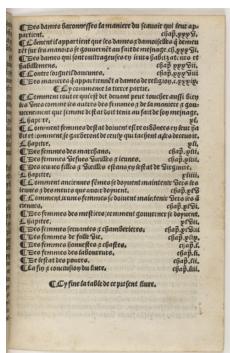 ¶ Des dames baronnesses la maniere du scavoir qui leur ap-
partient. chap. xxxvi.
¶ Comment il appartient que les dames & damoiselles q̄ demeu-
rēt sur leurs manoirs se gouvernēt au fait de mesnage. ch. xxxvii.
¶ Des dames qui sont oultrageuses en leurs habitz atours et
habillemens. chap. xxxviii.
¶ Contre l'orgueil daucunes. chap. xxxix.
¶ Des manieres q̄ appartiennēt a dames de religion. c. xxxix.
¶ Cy commence la tierce partie.
¶ Comment tout ce qui est dit devant peut toucher aussi bien
les unes comme les autres des femmes & de la maniere & gou-
vernement que femme destat doit tenir au fait de son mesnage.
chapitre. xl.
¶ Comment femmes destat doivent estre en leurs
et comment se garderont de ceulx qui tachent a les decevoir.
chapitre. xli.
¶ Des femmes des marchans. chap. xlii.
¶ Des femmes vefves vieilles & ieunes. chap. xliii.
¶ Des ieunes filles & vieilles estans en lestat de virginite.
chapitre. xliiii.
¶ Comment anciennes fēmes se doyvent maintenir vers les
ieunes & des meurs que avoir doivent. chap. xlv.
¶ Comment ieunes femmes se doivent maintenir vers les an-
ciennes. chap. xlvi.
¶ Des femmes des mestiers comment gouverner se doyvent.
chapitre. xlvii.
¶ Des femmes servantes & chamberieres. chap. xlviii.
¶ Des femmes de folle vie. chap. xlix.
¶ Des femmes honnestes & chastes. chap. l.
¶ Des femmes des laboureurs. chap. li.
¶ De lestat des povres. chap. lii.
¶ La fin & conclusion du livre. chap. liii.
¶ Cy fine la table de ce present livre.